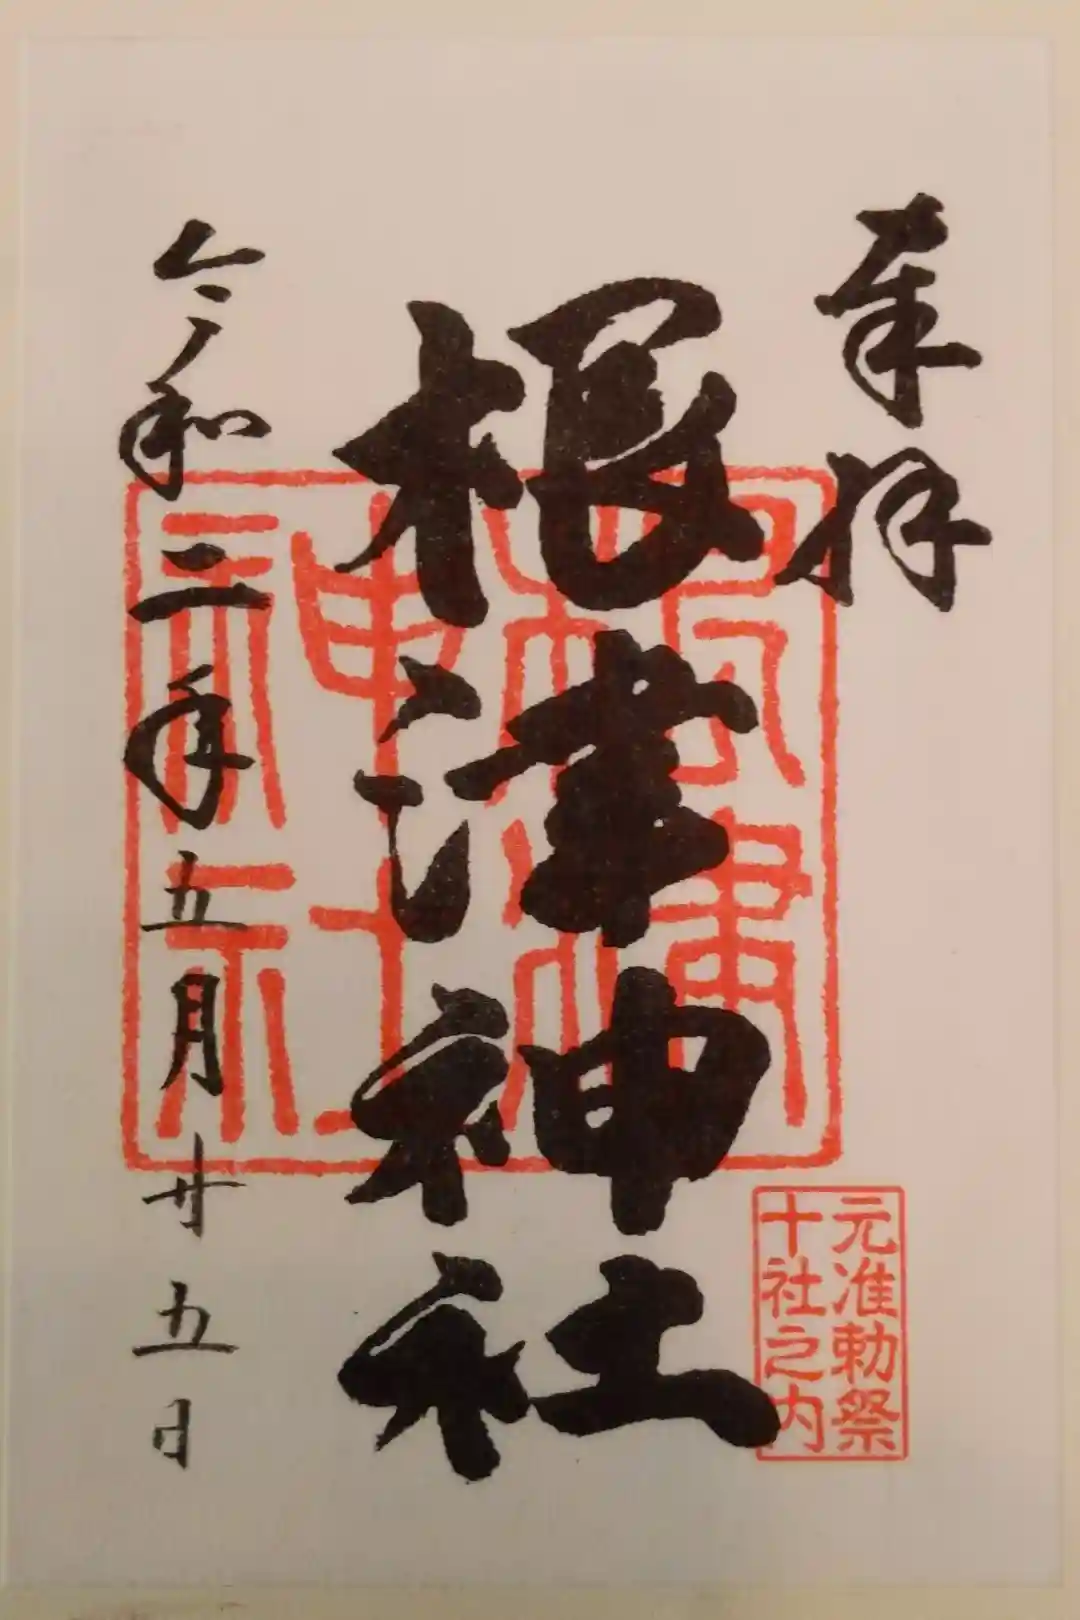 奉拝
根津神社
令和三年五月廿五日
根津
神社
元准勅祭
十社之内